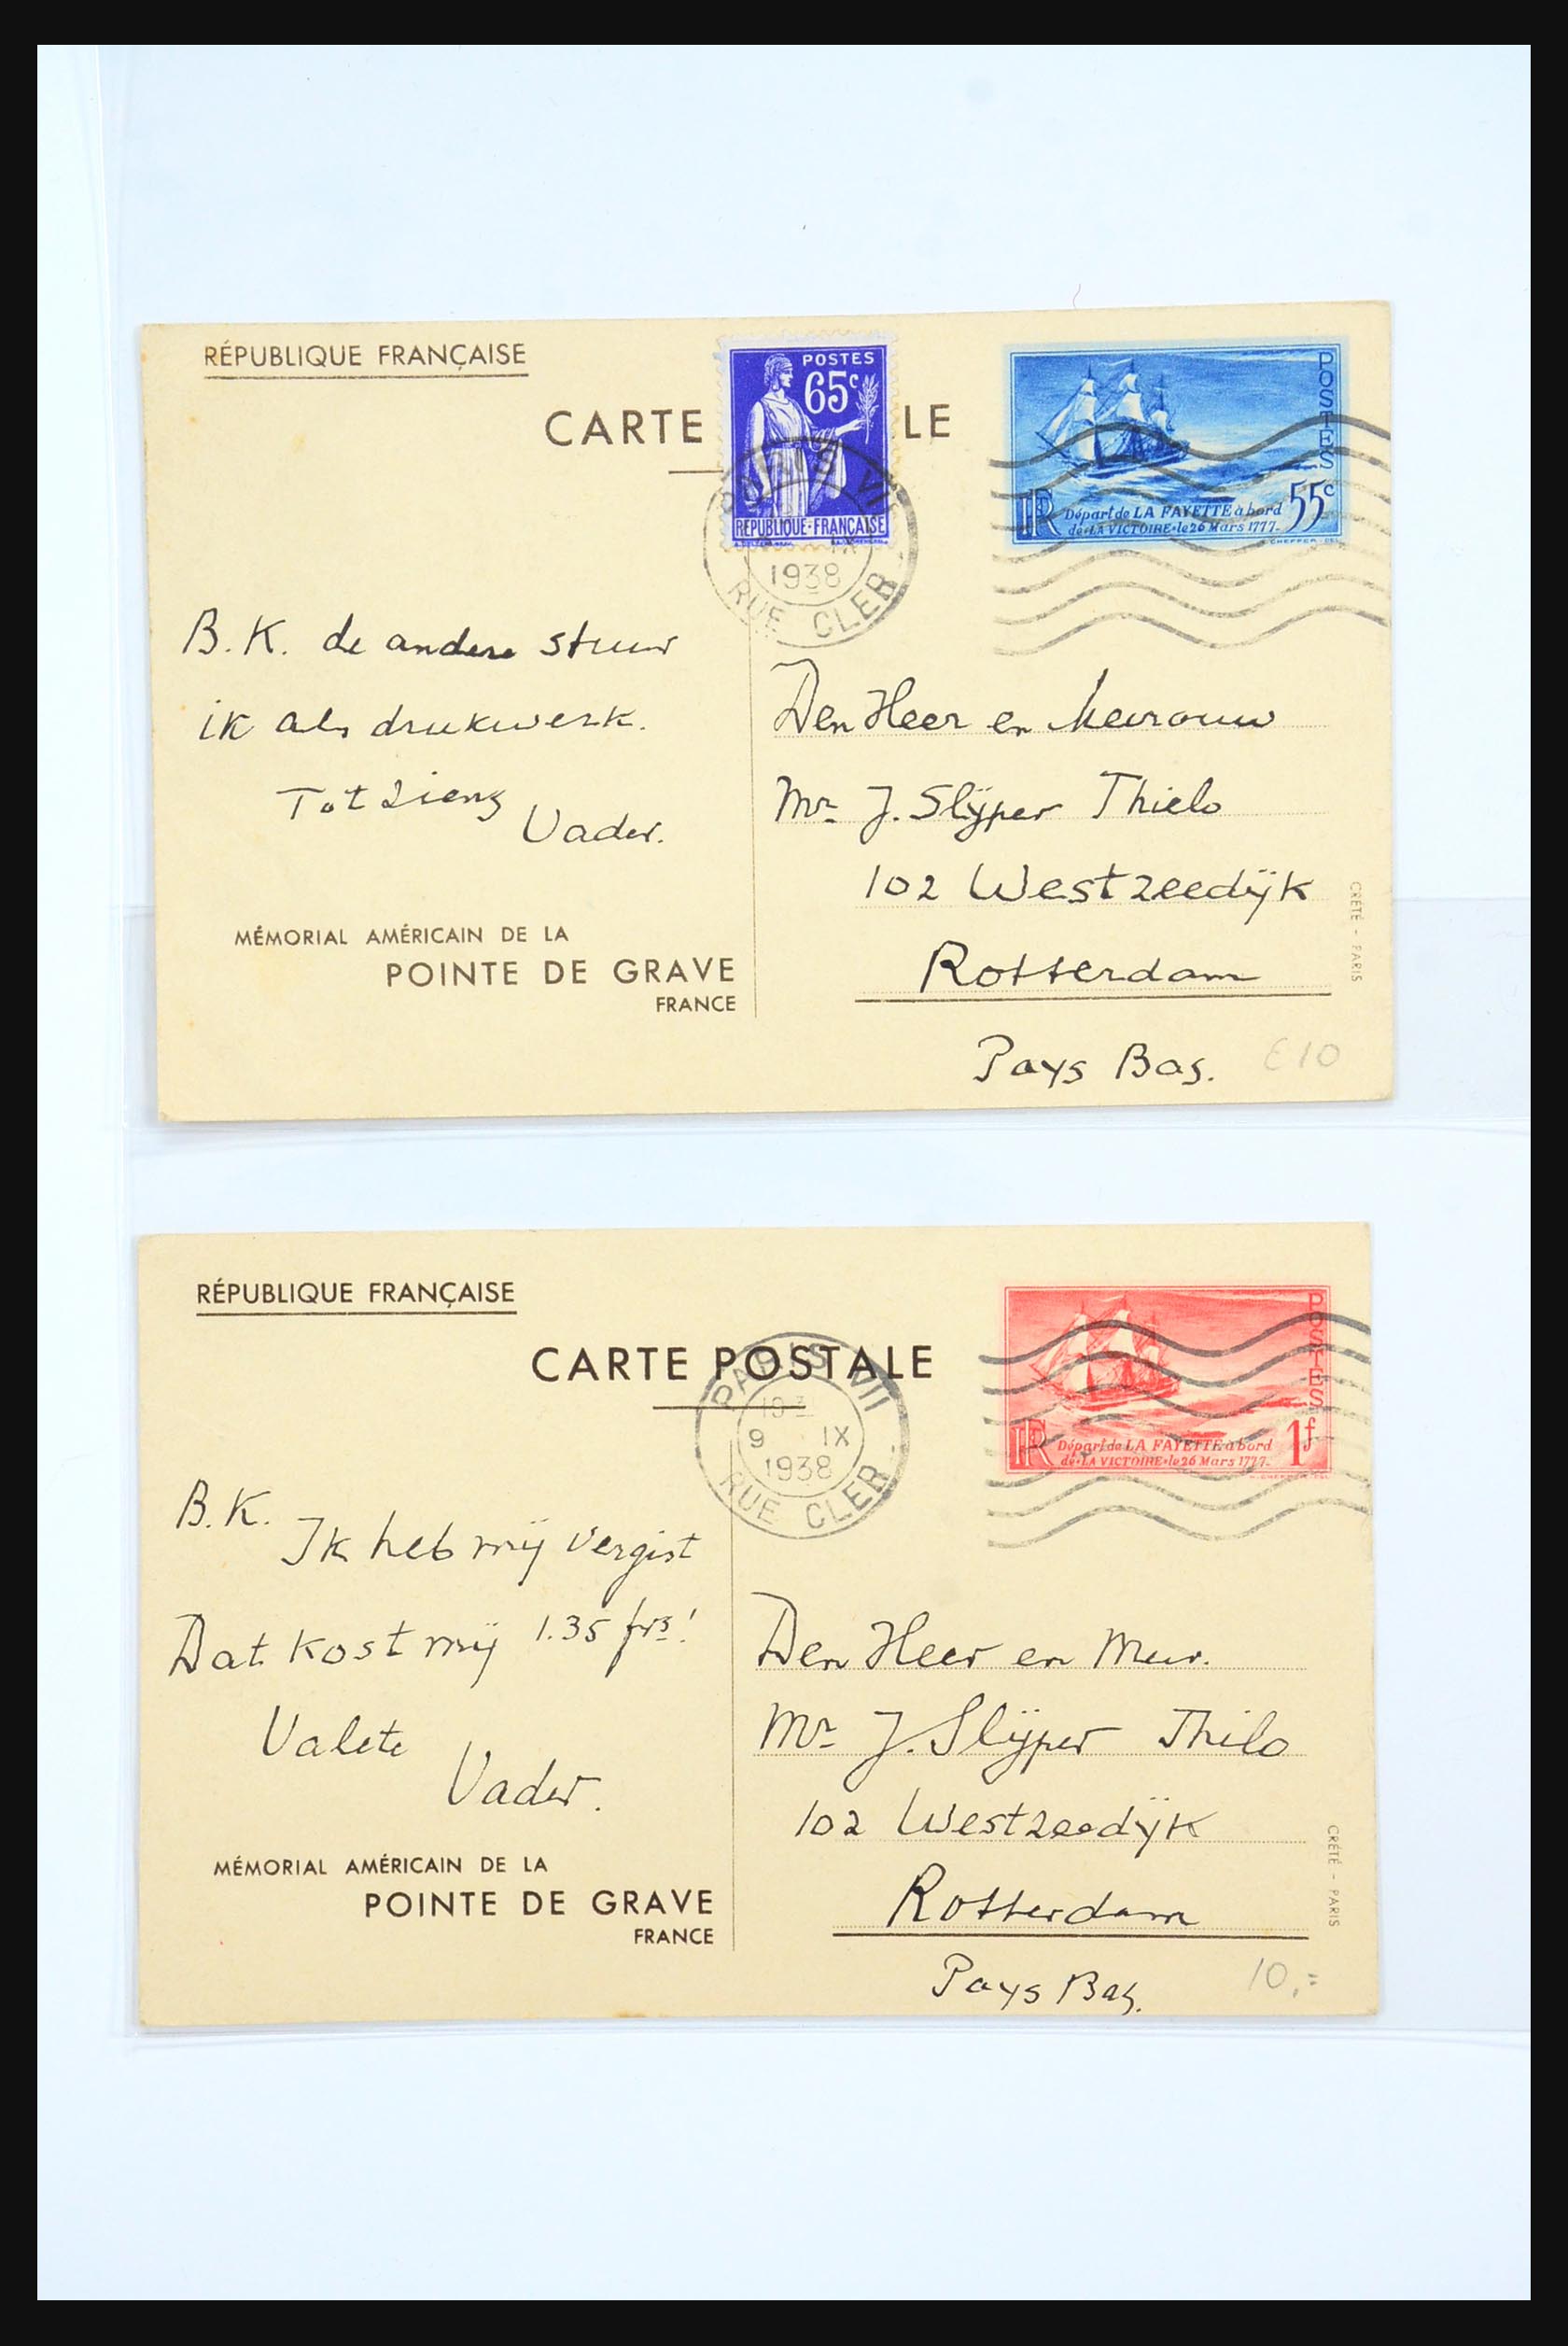 RÉPUBLIQUE FRANÇAISE
CARTE LE
POSTES
65c
REPUBLIQUE·FRANÇAISE
PARIS VII
IX
1938
RUE CLER
POSTES
RF Départ de LA FAYETTE à bord 55c
de·LA VICTOIRE·le 26 Mars 1777-
CHEFFER·DEL
B.K. de andere stuur
ik als drukwerk.
Tot Ziens
Vader.
Den Heer en Mevrouw
Mr J. Slijper Thielo
102 Westzeedijk
Rotterdam
Pays Bas.
€10
MÉMORIAL AMÉRICAIN DE LA
POINTE DE GRAVE
FRANCE
CRÉTÉ - PARIS
RÉPUBLIQUE FRANÇAISE
CARTE POSTALE
PARIS VII
9 IX
1938
RUE CLER
POSTES
RF Départ de LA FAYETTE à bord 1f
de·LA VICTOIRE·le 26 Mars 1777-
B.K.
Ik heb mij vergist
Dat kost mij 1.35 frs!
Valete
Vader.
Den Heer en Mevr.
Mr J. Slijper Thilo
102 Westzeedijk
Rotterdam
Pays Bas.
10,=
MÉMORIAL AMÉRICAIN DE LA
POINTE DE GRAVE
FRANCE
CRÉTÉ - PARIS